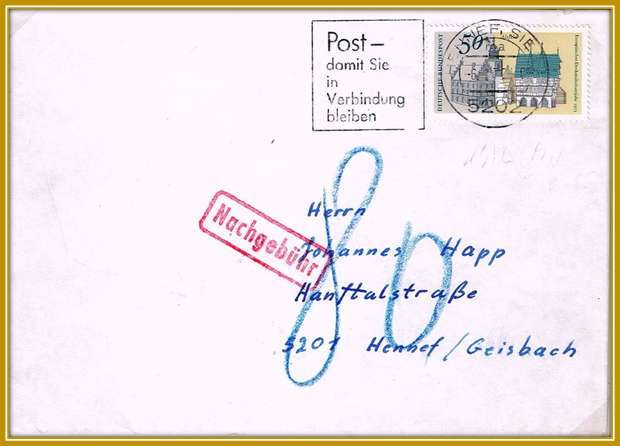 Post–
damit Sie
in
Verbindung
bleiben
DEUTSCHE BUNDESPOST
50
Europäisches Denkmalschutzjahr 1975
5202
Nachgebühr
80
Herrn
Johannes Happ
Hanftalstraße
5201 Hennef/Geisbach